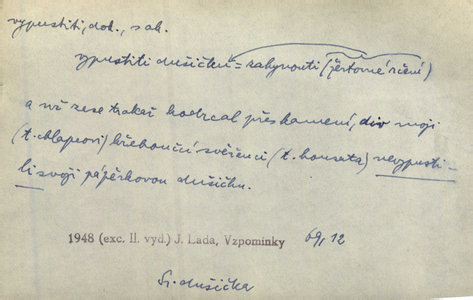 vypustiti, dok., s ak.
vypustiti dušičku = zahynouti (žertovné rčení)
a už zase trakař hodrcal přes kamení, div moji
(t. chlapcovi) křehoučcí svěřenci (t. housata) nevypusti-
li svoji pápěrkovou dušičku.
1948 (exc. II. vyd.) J. Lada, Vzpomínky 69, 12
Sr. dušička